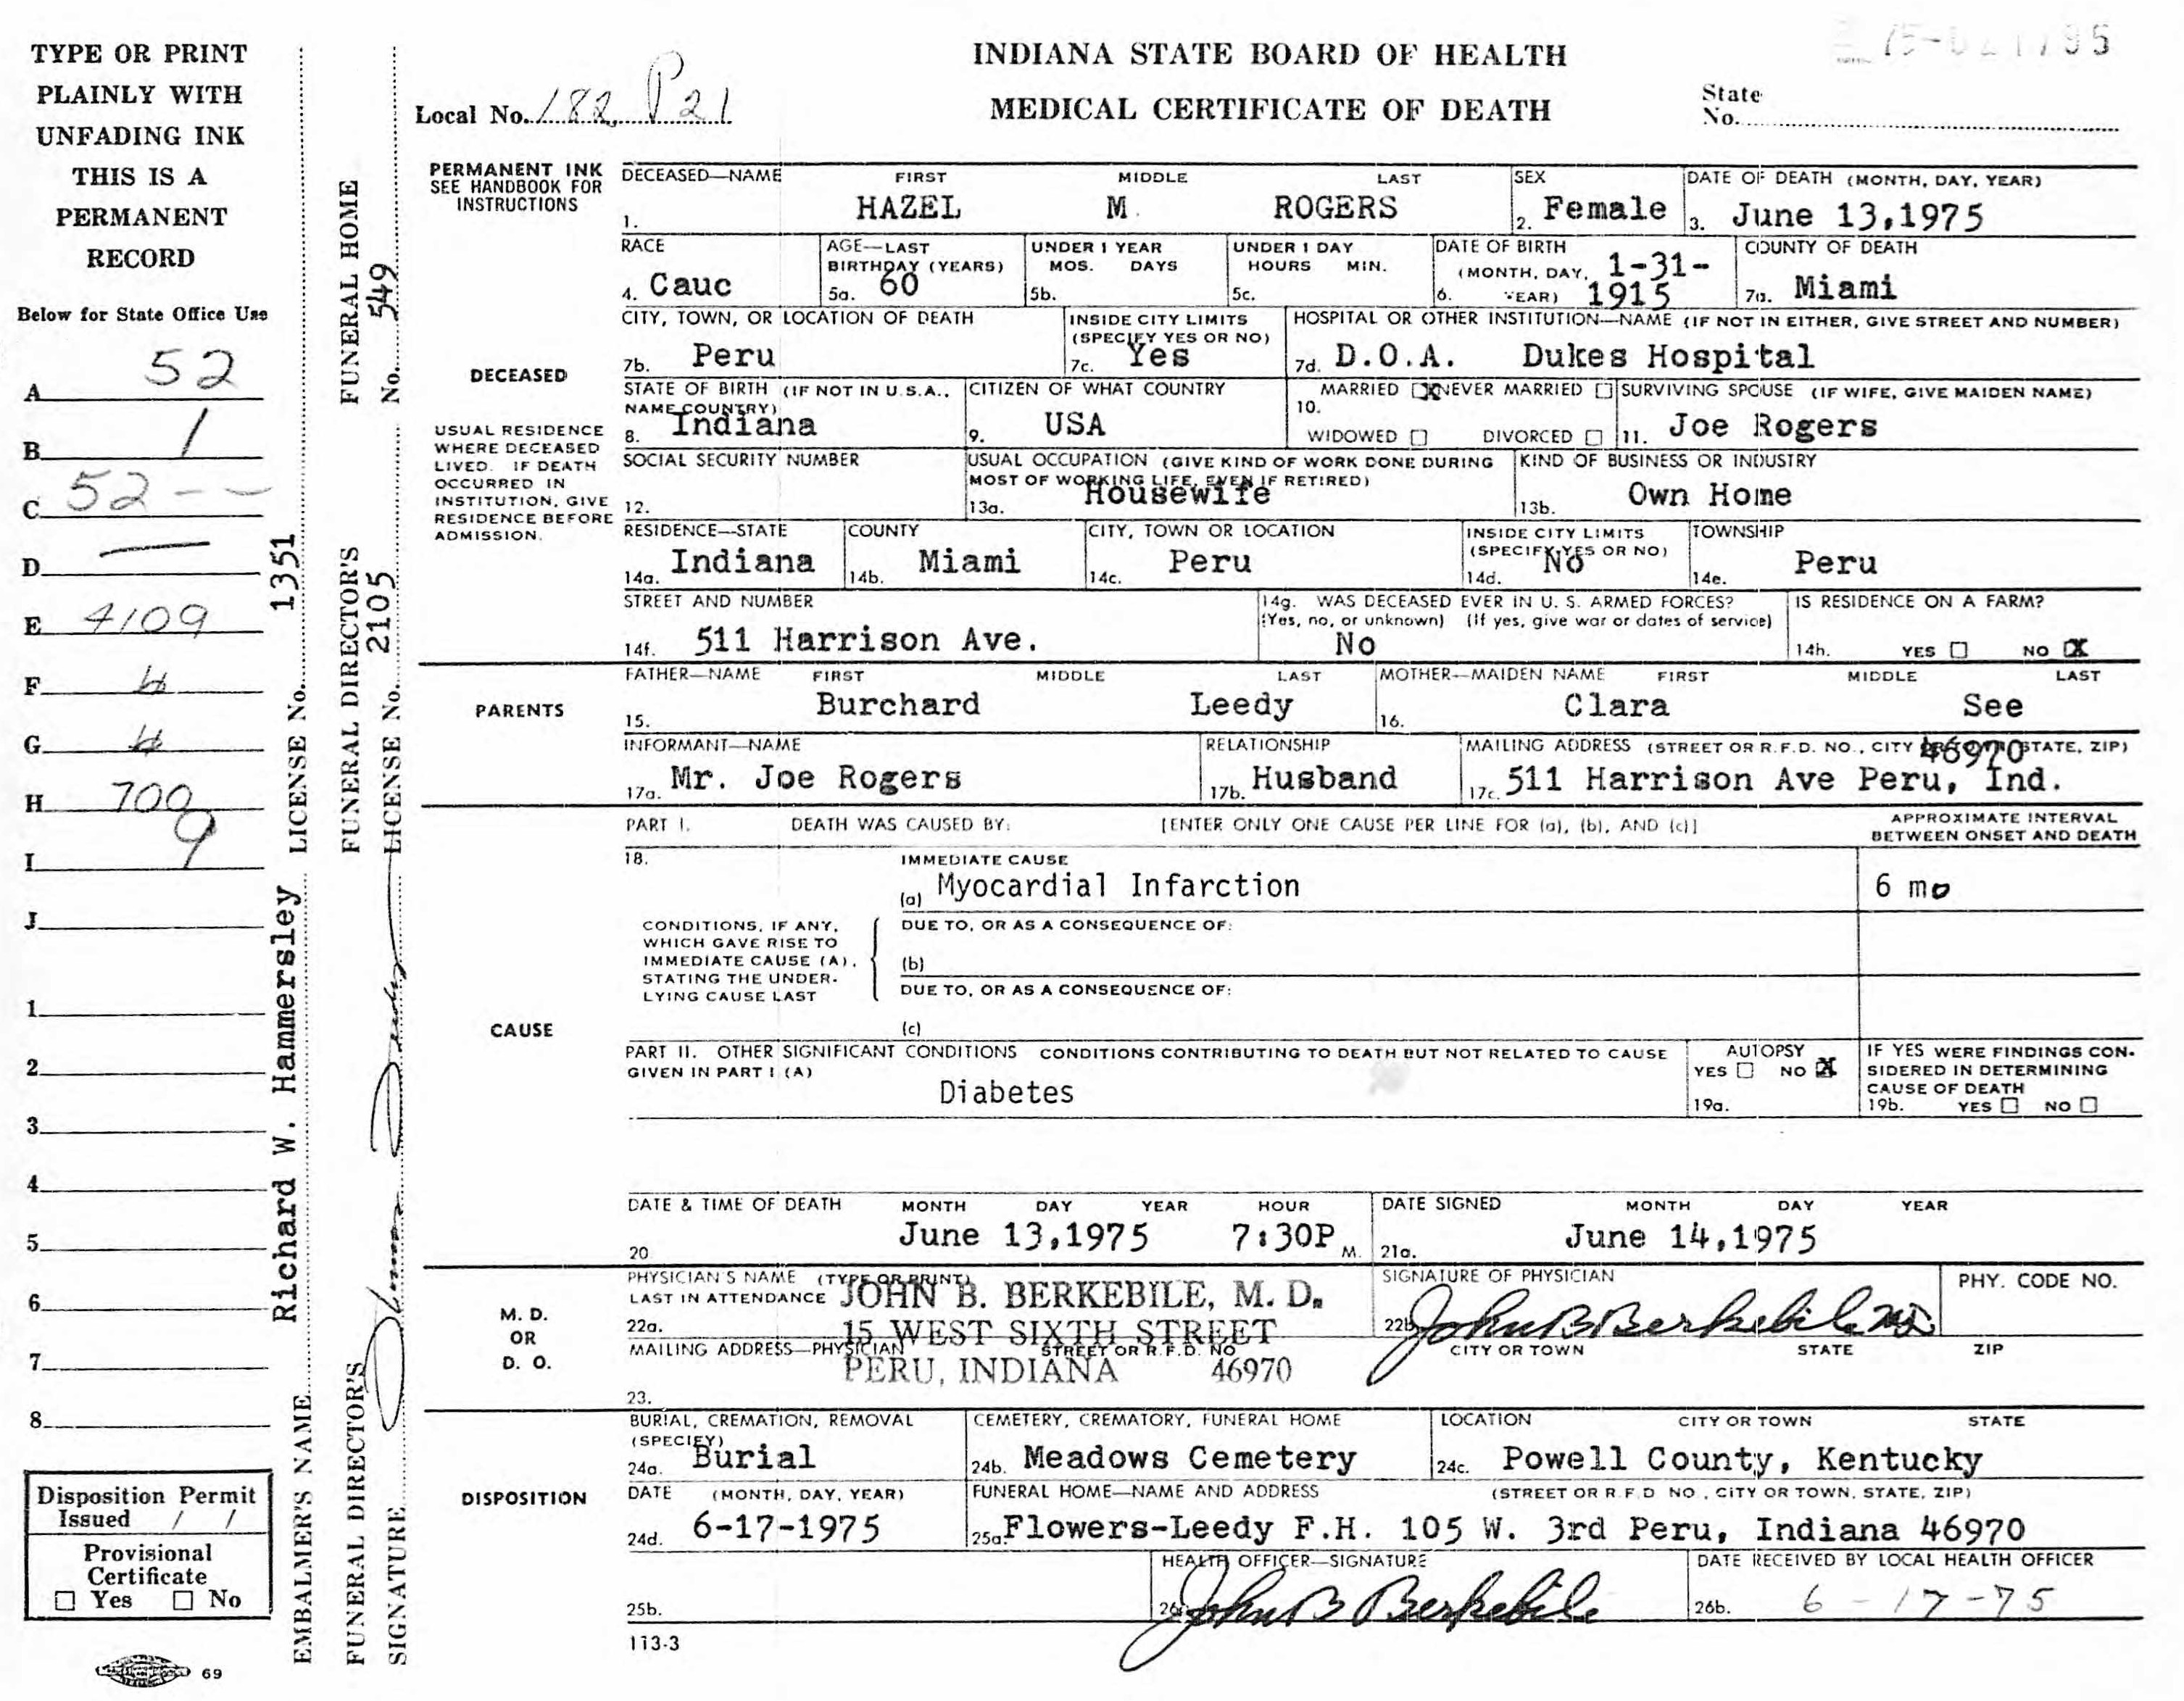 TYPE OR PRINT
PLAINLY WITH
UNFADING INK
THIS IS A
PERMANENT
RECORD
Below for State Office Use
A 52
B 1
C 52 - -
D —
E 4109
F
G
H 700
I 9
J
1
2
3
4
5
6
7
8
Disposition Permit
Issued / /
Provisional
Certificate
☐ Yes ☐ No
69
EMBALMER'S NAME Richard W. Hammersley LICENSE No. 1351
FUNERAL DIRECTOR'S
SIGNATURE
FUNERAL DIRECTOR'S
LICENSE No. 2105
FUNERAL HOME
No. 549
INDIANA STATE BOARD OF HEALTH
MEDICAL CERTIFICATE OF DEATH
Local No. 182 P 21
State
No.
PERMANENT INK
SEE HANDBOOK FOR
INSTRUCTIONS
DECEASED—NAME FIRST MIDDLE LAST SEX DATE OF DEATH (MONTH, DAY, YEAR)
1. HAZEL M. ROGERS 2. Female 3. June 13,1975
RACE AGE—LAST BIRTHDAY (YEARS) UNDER 1 YEAR MOS. DAYS UNDER 1 DAY HOURS MIN. DATE OF BIRTH (MONTH, DAY, YEAR) COUNTY OF DEATH
4. Cauc 5a. 60 5b. 5c. 6. 1-31-1915 7a. Miami
CITY, TOWN, OR LOCATION OF DEATH INSIDE CITY LIMITS (SPECIFY YES OR NO) HOSPITAL OR OTHER INSTITUTION—NAME (IF NOT IN EITHER, GIVE STREET AND NUMBER)
7b. Peru 7c. Yes 7d. D.O.A. Dukes Hospital
DECEASED
USUAL RESIDENCE
WHERE DECEASED
LIVED. IF DEATH
OCCURRED IN
INSTITUTION, GIVE
RESIDENCE BEFORE
ADMISSION.
STATE OF BIRTH (IF NOT IN U.S.A., NAME COUNTRY) CITIZEN OF WHAT COUNTRY MARRIED ☒ NEVER MARRIED ☐ SURVIVING SPOUSE (IF WIFE, GIVE MAIDEN NAME)
8. Indiana 9. USA 10. WIDOWED ☐ DIVORCED ☐ 11. Joe Rogers
SOCIAL SECURITY NUMBER USUAL OCCUPATION (GIVE KIND OF WORK DONE DURING MOST OF WORKING LIFE, EVEN IF RETIRED) KIND OF BUSINESS OR INDUSTRY
12. 13a. Housewife 13b. Own Home
RESIDENCE—STATE COUNTY CITY, TOWN OR LOCATION INSIDE CITY LIMITS (SPECIFY YES OR NO) TOWNSHIP
14a. Indiana 14b. Miami 14c. Peru 14d. No 14e. Peru
STREET AND NUMBER 14g. WAS DECEASED EVER IN U. S. ARMED FORCES? (Yes, no, or unknown) (If yes, give war or dates of service) IS RESIDENCE ON A FARM?
14f. 511 Harrison Ave. No 14h. YES ☐ NO ☒
PARENTS
FATHER—NAME FIRST MIDDLE LAST MOTHER—MAIDEN NAME FIRST MIDDLE LAST
15. Burchard Leedy 16. Clara See
INFORMANT—NAME RELATIONSHIP MAILING ADDRESS (STREET OR R.F.D. NO., CITY OR TOWN, STATE, ZIP)
46970
17a. Mr. Joe Rogers 17b. Husband 17c. 511 Harrison Ave Peru, Ind.
CAUSE
PART I. DEATH WAS CAUSED BY: [ENTER ONLY ONE CAUSE PER LINE FOR (a), (b), AND (c)] APPROXIMATE INTERVAL BETWEEN ONSET AND DEATH
18. IMMEDIATE CAUSE
(a) Myocardial Infarction 6 mo
CONDITIONS, IF ANY,
WHICH GAVE RISE TO
IMMEDIATE CAUSE (A),
STATING THE UNDER-
LYING CAUSE LAST
DUE TO, OR AS A CONSEQUENCE OF:
(b)
DUE TO, OR AS A CONSEQUENCE OF:
(c)
PART II. OTHER SIGNIFICANT CONDITIONS CONDITIONS CONTRIBUTING TO DEATH BUT NOT RELATED TO CAUSE
GIVEN IN PART I (A)
Diabetes
AUTOPSY
YES ☐ NO ☒
19a.
IF YES WERE FINDINGS CON-
SIDERED IN DETERMINING
CAUSE OF DEATH
19b. YES ☐ NO ☐
DATE & TIME OF DEATH MONTH DAY YEAR HOUR DATE SIGNED MONTH DAY YEAR
20 June 13,1975 7:30P M. 21a. June 14,1975
M. D.
OR
D. O.
PHYSICIAN'S NAME (TYPE OR PRINT) SIGNATURE OF PHYSICIAN PHY. CODE NO.
LAST IN ATTENDANCE JOHN B. BERKEBILE, M. D.
22a. 15 WEST SIXTH STREET 22b. John B Berkebile MD
MAILING ADDRESS—PHYSICIAN STREET OR R.F.D. NO CITY OR TOWN STATE ZIP
PERU, INDIANA 46970
23.
DISPOSITION
BURIAL, CREMATION, REMOVAL (SPECIFY) CEMETERY, CREMATORY, FUNERAL HOME LOCATION CITY OR TOWN STATE
24a. Burial 24b. Meadows Cemetery 24c. Powell County, Kentucky
DATE (MONTH, DAY, YEAR) FUNERAL HOME—NAME AND ADDRESS (STREET OR R.F.D NO., CITY OR TOWN, STATE, ZIP)
24d. 6-17-1975 25a. Flowers-Leedy F.H. 105 W. 3rd Peru, Indiana 46970
HEALTH OFFICER—SIGNATURE DATE RECEIVED BY LOCAL HEALTH OFFICER
25b. 26a. John B Berkebile 26b. 6-17-75
113-3